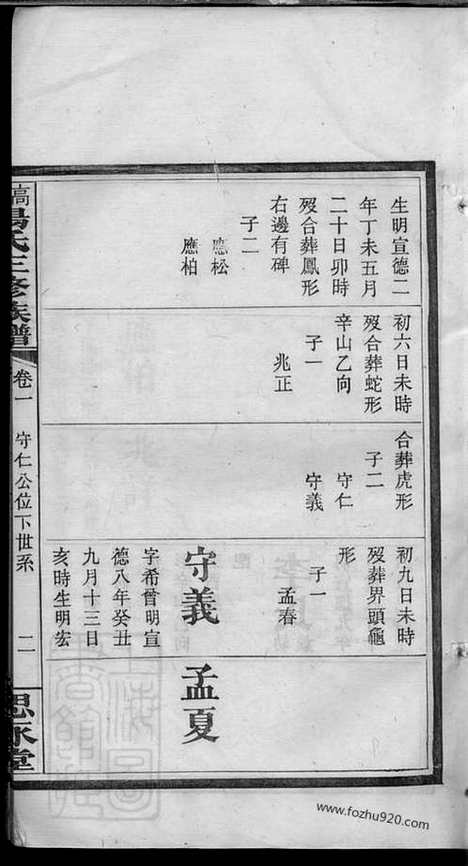 生明宣德二
年丁未五月
二十日卯時
殁合葬鳳形
右邊有碑
子二
應松
應柏
初六日未時
殁合葬蛇形
辛山乙向
子一
兆正
合葬虎形
子二
守仁
守義
初九日未時
殁葬界頭龜
形
子一
孟春
守義
字希曾明宣
德八年癸丑
九月十三日
亥時生明宏
孟夏
高
湯氏三修族譜
卷一
守仁公位下世系
二
思永堂
www.fozhu920.com